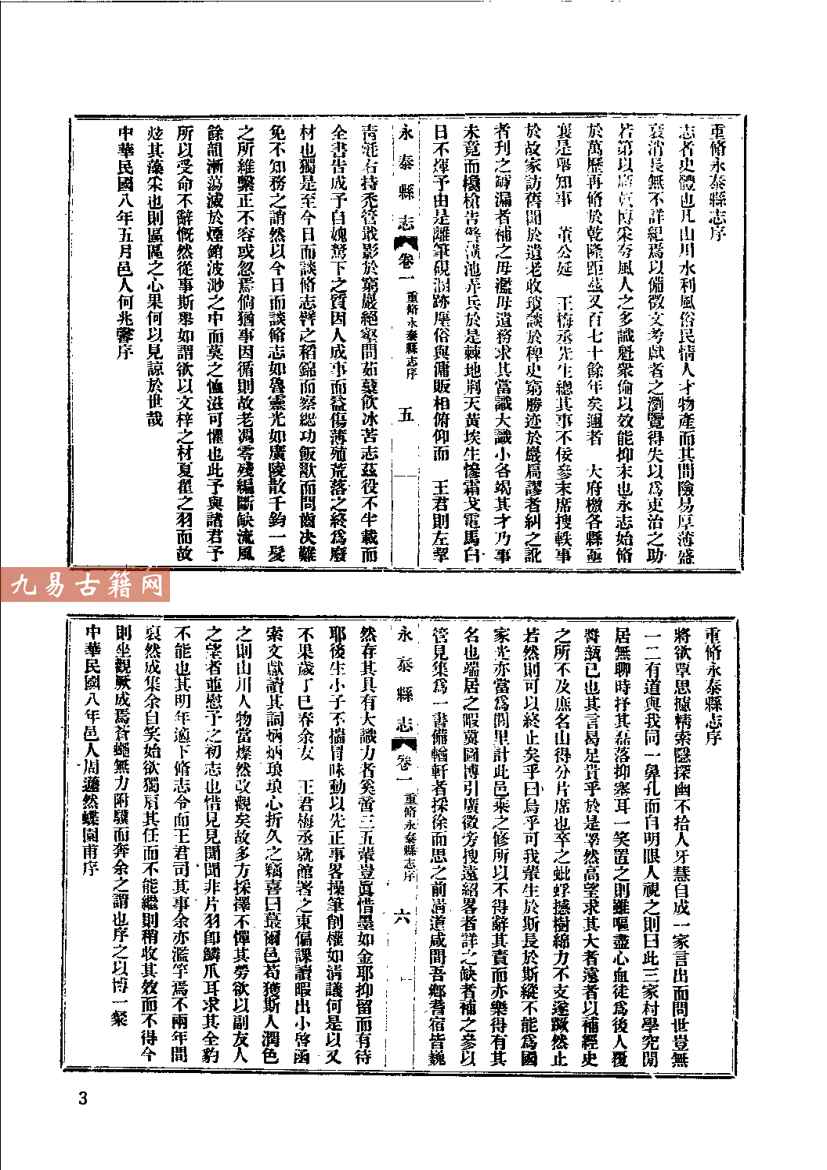 重脩永泰縣志序
志者史體也凡山川水利風俗民情人才物產而其間險易厚薄盛
衰消長無不詳紀焉以備徵文考獻者之瀏覽得失以爲吏治之助
若第以博采夯風人之多識魁衆倫以效能抑末也永志始脩
於萬歷再脩於乾隆距茲又百七十餘年矣邇者 大府檄各縣亟
襄是舉知事 董公延 王梅丞先生總其事不佞參末席搜軼事
於故家訪舊聞於遺老收瑣談於稗史窮勝迹於巖扃謬者糾之訛
者刋之罅漏者補之毋濫毋遺務求其當識大識小各竭其才乃事
未竟而欃槍吿警潢池弄兵於是棘地荆天黃埃生慘霜戈電馬白
日不煇予由是離筆硯溷跡塵俗與傭販相俯仰而 王君則左挈
永泰縣志 卷一 重脩永泰縣志序 五
靑氈右持禿管戢影於窮巖絕壑問茹蘗飮冰苦志茲役不半載而
全書吿成予自媿駑下之質因人成事而益傷薄殖荒落之終爲廢
材也獨是至今日而談脩志譬之稻錦而察總功飯歠而問齒决難
免不知務之誚然以今日而談脩志如魯靈光如廣陵散千鈞一髮
之所維繫正不容或忽焉倘猶事因循則故老凋零殘編斷缺流風
餘韻漸蕩滅於煙銷波渺之中而莫之恤滋可懼也此予與諸君子
所以受命不辭慨然從事斯舉如謂欲以文梓之材夏翟之羽而故
炫其藻采也則區區之心果何以見諒於世哉
中華民國八年五月邑人何兆馨序
重脩永泰縣志序
將欲覃思攄精索隱探幽不拾人牙慧自成一家言出面問世豈無
一二有道與我同一鼻孔而自明眼人視之則曰此三家村學究閒
居無聊時抒其磊落抑塞耳一笑置之則雖嘔盡心血徒爲後人覆
醬瓿已也其言曷足貴乎於是睪然高望求其大者遠者以補經史
之所不及庶名山得分片席也卒之蚍蜉撼樹綿力不支遂蹶然止
若然則可以終止矣乎曰烏乎可我輩生於斯長於斯縱不能爲國
家光亦當爲閭里計此邑乘之修所以不得辭其責而亦樂得有其
名也端居之暇冀圖博引廣徵旁搜遠紹畧者詳之缺者補之參以
管見集爲一書備輶軒者採徐而思之前淸道咸間吾鄉耆宿皆巍
永泰縣志 卷一 重脩永泰縣志序 六
然存其具有大識力者奚啻三五輩豈眞惜墨如金耶抑留而有待
耶後生小子不揣冒昧動以先正事畧操筆削權如淸議何是以又
不果歲丁巳春余友 王君梅丞就館署之東偏課讀暇出小啓函
索文獻讀其詞炳炳琅琅心折久之竊喜曰蕞爾邑苟獲斯人潤色
之則山川人物當燦然改觀矣故多方採擇不憚其勞欲以副友人
之望者並慰予之初志也惜見見聞聞非片羽卽鱗爪耳求其全豹
不能也其明年適下脩志令而王君司其事余亦濫竽焉不兩年間
裒然成集余自笑始欲獨肩其任而不能繼則稍收其效而不得今
則坐觀厥成焉蒼蠅無力附驥而奔余之謂也序之以博一粲
中華民國八年邑人周蓮然蝶園甫序
九易古籍网
3